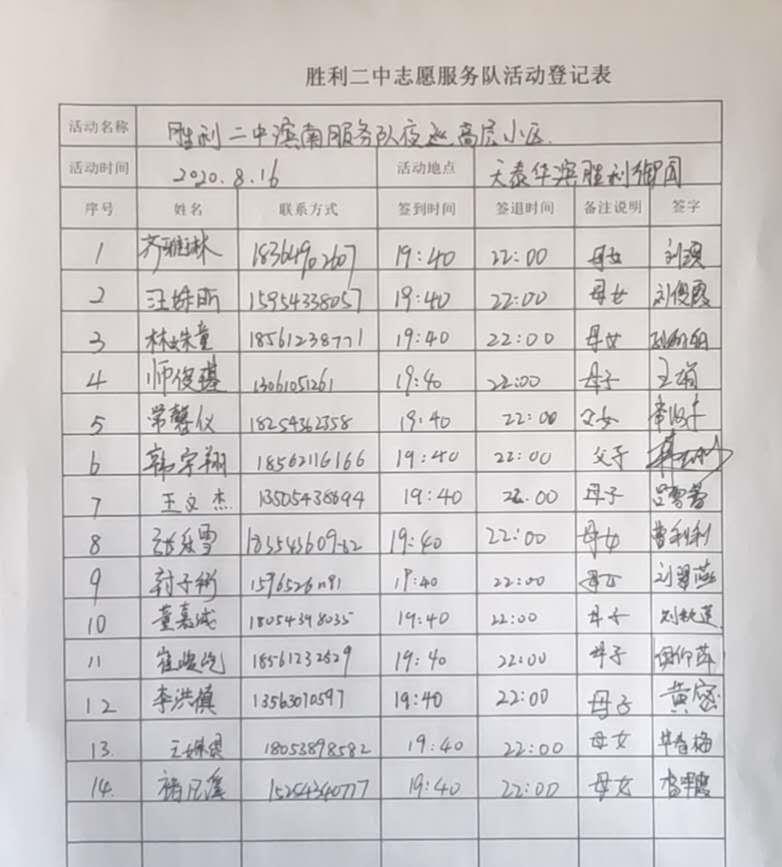 胜利二中志愿服务队活动登记表
活动名称 胜利二中滨南服务队夜巡高层小区.
活动时间 2020.8.16 活动地点 天泰华滨胜利御园
序号 姓名 联系方式 签到时间 签退时间 备注说明 签字
1 齐雅琳 18364902607 19:40 22:00 母女
2 15954338057 19:40 22:00 母女 刘俊霞
3 林姝童 18561238771 19:40 22:00 母女
4 师俊琪 13061051261 19:40 22:00 母子
5 常馨仪 18254362358 19:40 22:00 父女
6 韩宇翔 18562116166 19:40 22:00 父子
7 王文杰 13505438694 19:40 22:00 母子
8 19:40 22:00 母女 曹利利
9 19:40 22:00 母女 刘翠燕
10 董嘉诚 18054398035 19:40 22:00 母子
11 18561232529 19:40 22:00 母子
12 李洪慎 13563070597 19:40 22:00 母子
13. 18053898582 19:40 22:00 母女 毕春梅
14. 15254340777 19:40 22:00 母女